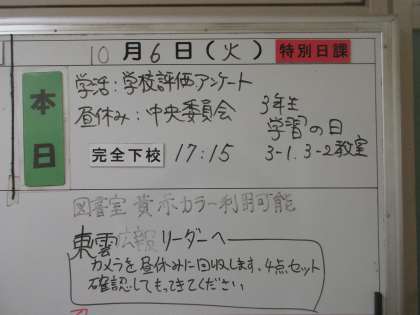 10月6日(火) 特別日課
本日
学活:学校評価アンケート
昼休み:中央委員会
3年生
学習の日
3-1、3-2教室
完全下校 17:15
図書室 黄・赤カラー利用可能
東雲広報リーダーへ
カメラを昼休みに回収します。4点セット
確認してもってきてください